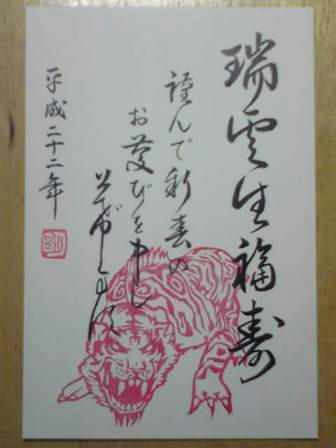 瑞雲生福寿
謹んで新春の
お慶びを申し
上げます
平成二十二年